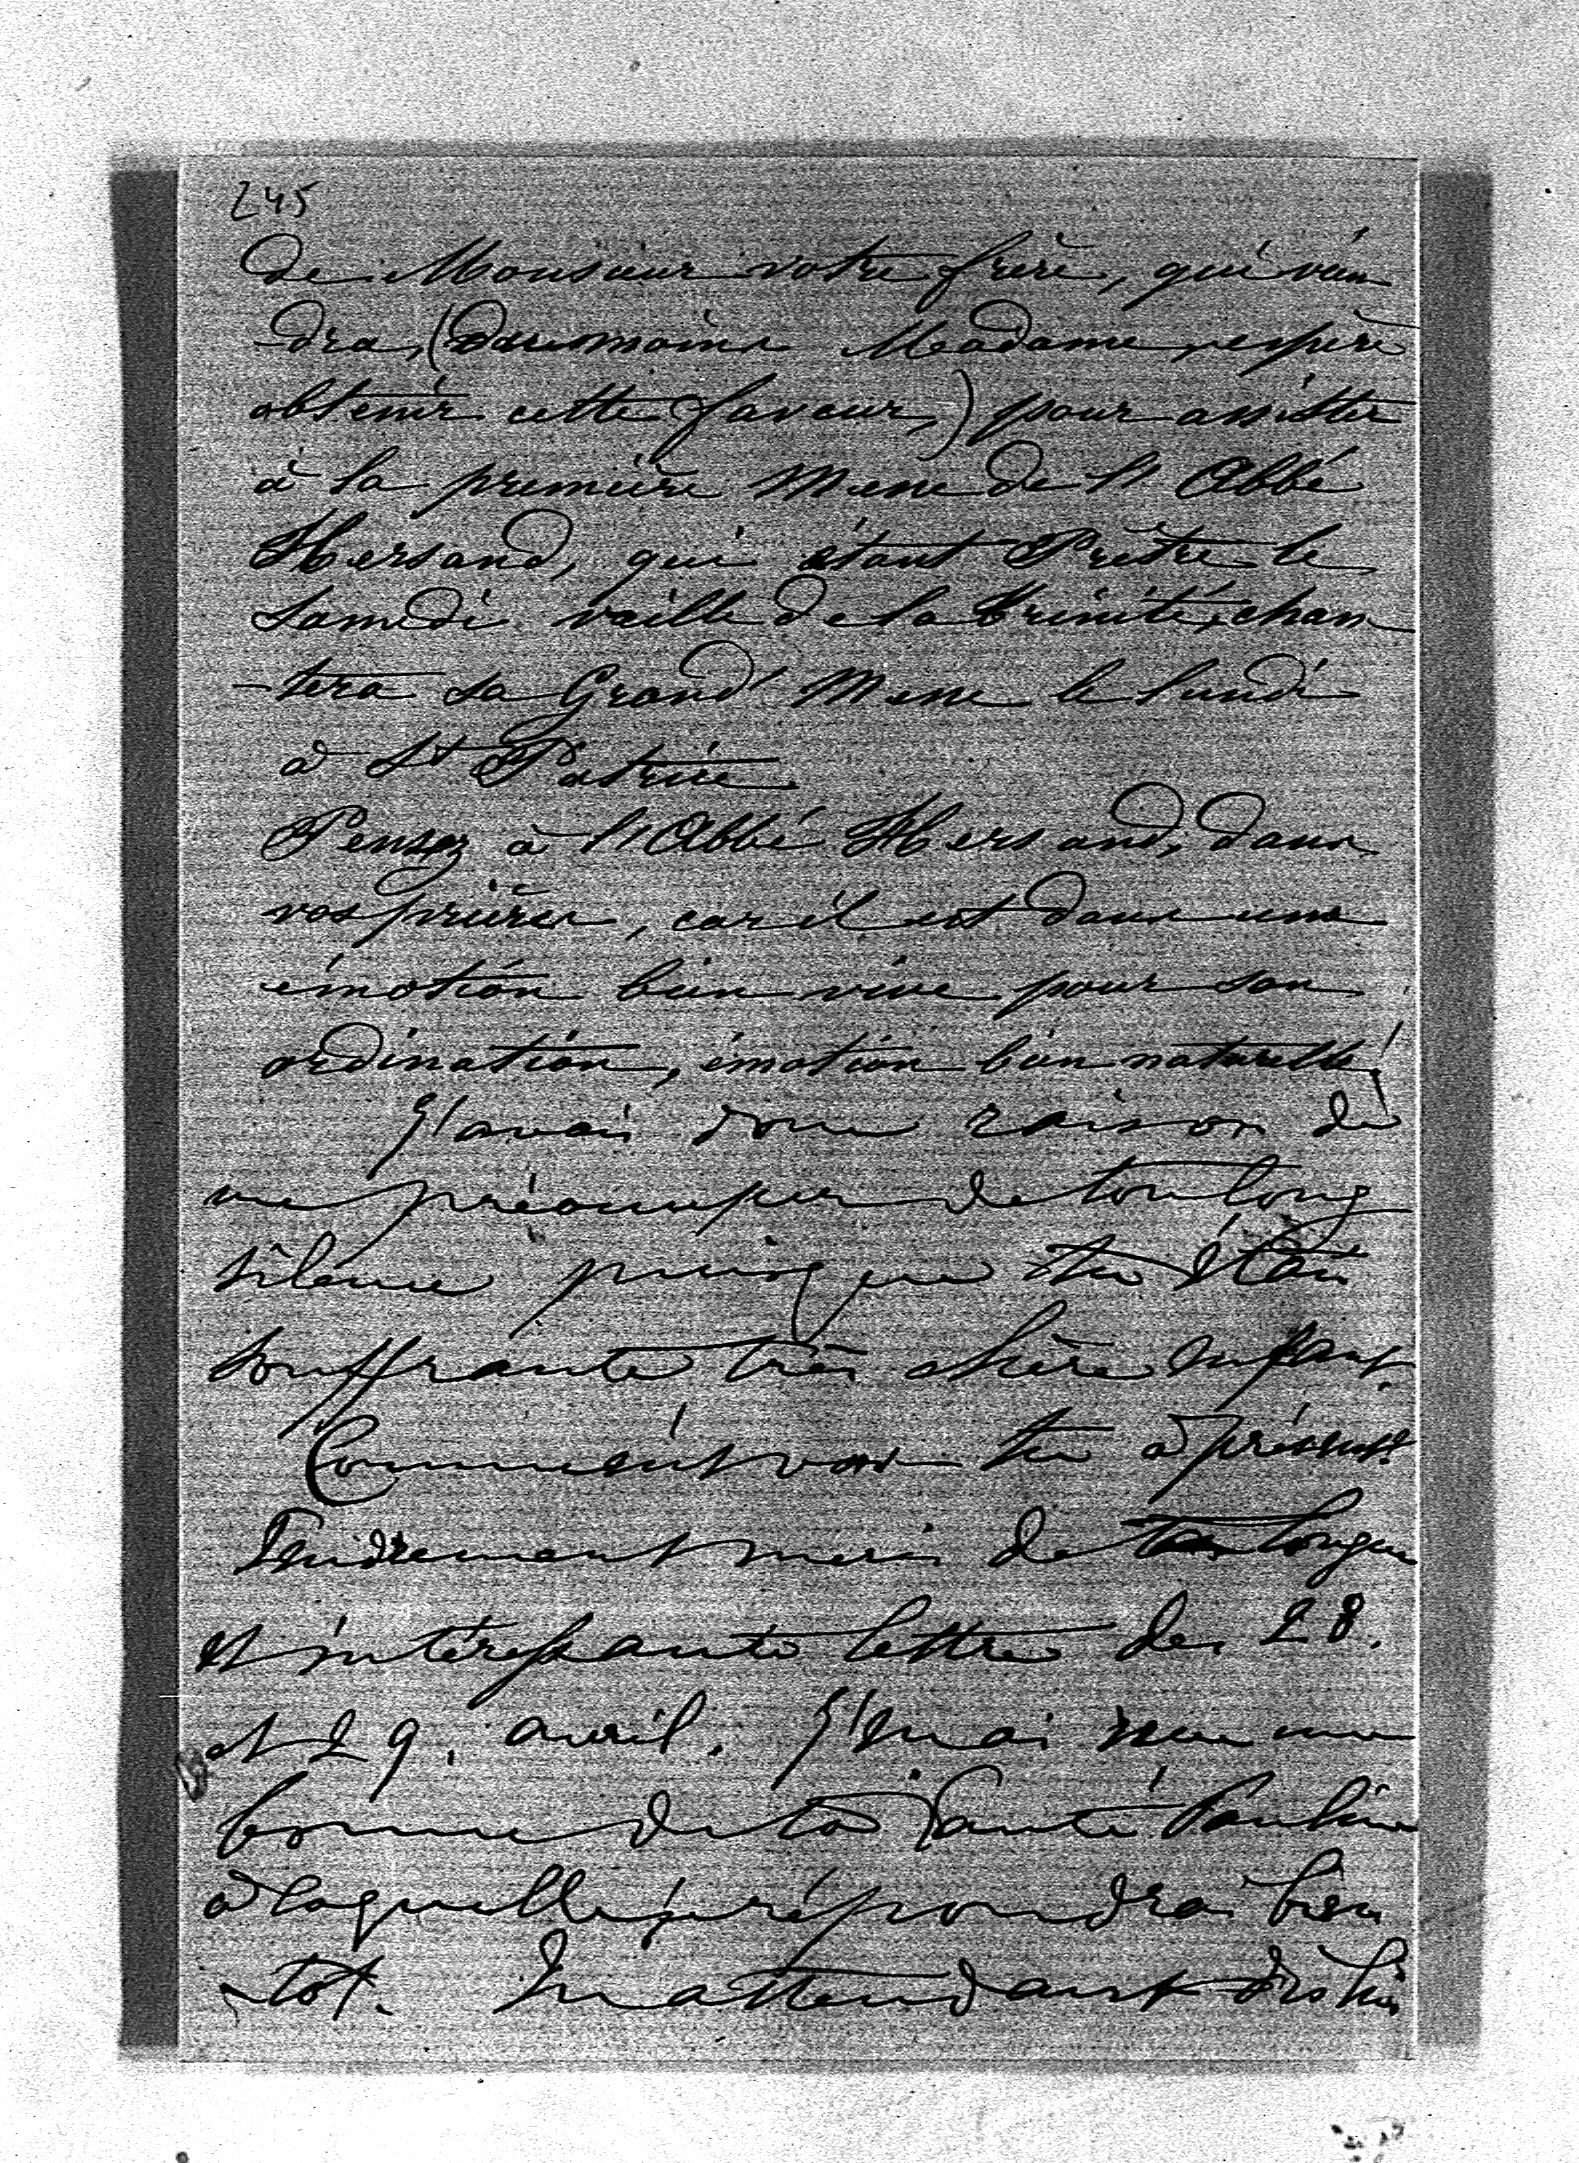 245
de Monsieur votre frère, qui vien
-dra, (du moins Madame, espère
obtenir cette faveur,) pour assister
à la première Messe de l'Abbé
Hersand, qui étant Prêtre le
Samedi veille de la Trinité, chan
-tera sa Grand' Messe le lundi
à St Patrice.
Pensez à l'Abbé Hersand, dans
vos prières, car il est dans une
émotion bien vive pour son
ordination, émotion bien naturelle!
J'avais donc raison de
me préoccuper de ton long
silence puisque tu étais
souffrante très chère Enfant.
Comment vas-tu à présent?
Tendrement merci de ta longue
et intéressante lettre des 28.
et 29. avril. J'en ai reçu une
bonne de ta Santé Pauline
à laquelle je répondrai bien
-tôt. En attendant dis lui